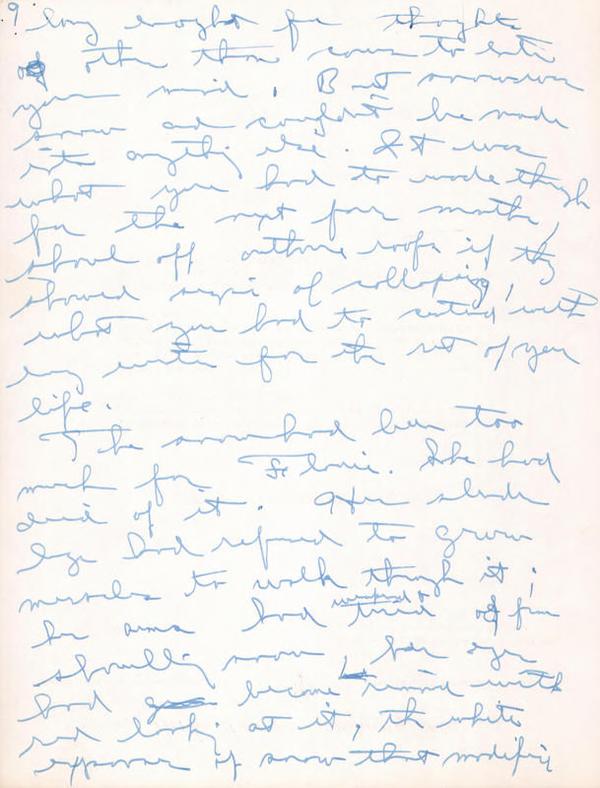 9
long enough for thoughts
of other than snow to enter
your mind. But snow was
snow and couldn't be made
into anything else. It was
what you had to wade through
for the next four months,
shovel off outhouse roofs if they
showed signs of collapsing,
what you had to contend with
every winter for the rest of your
life.
The snow had been too
much for Florrie. She had
died of it. Her slender
legs had refused to grow
muscles to walk through it;
her arms had tired from
shovelling snow, her eyes
had become rimmed with
red looking at it, the white
expanse of snow that